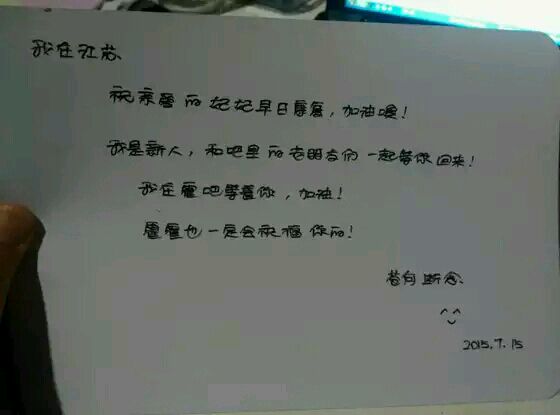 我在江苏
祝亲爱的妃妃早日康复，加油喔！
我是新人，和吧里的老朋友们一起等你回来！
我在吧等着你，加油！
也一定会祝福你的！
断念
^^
2015.7.15